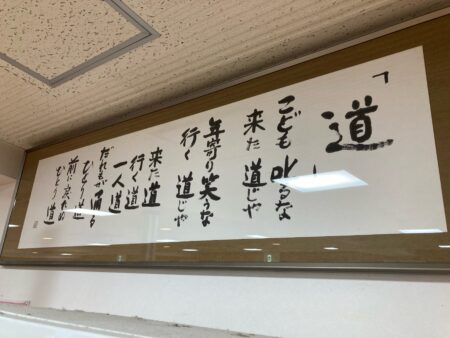 「道」
こども 叱るな
来た 道じゃ
年寄り 笑うな
行く 道じゃ
来た 道
行く 道
一人 道
だれもが 通る
ひとり 道
前に 戻れぬ
ひとり 道